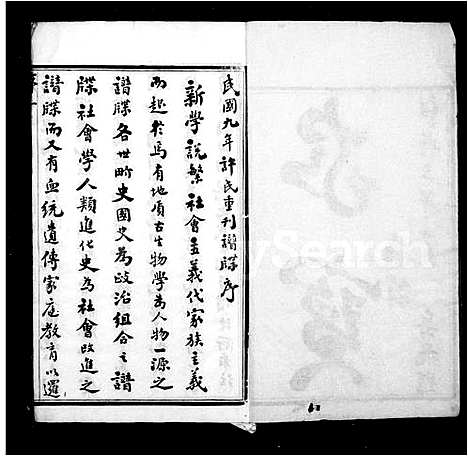 民國九年許氏重刊譜牒序
新學說繁社會主義代家族主義
而起於焉有地質古生物學為人物一源之
譜牒各世界史國史為政治組合之譜
牒社會學人類進化史為社會改進之
譜牒而又有血統遺傳家庭教育以邏
序
一